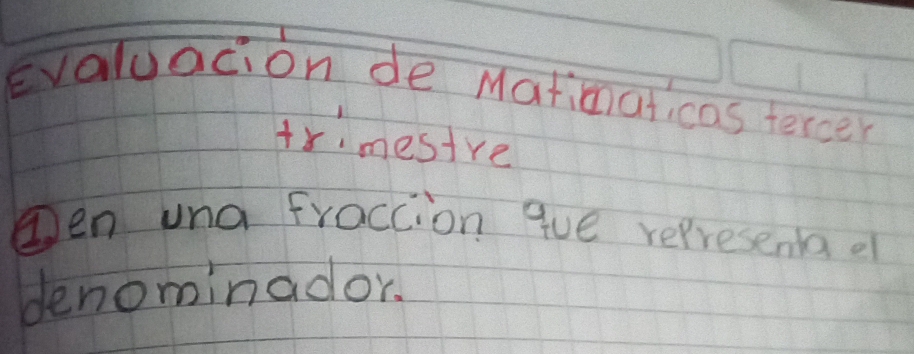 Evaluación de Matimáticas tercer
trimestre
① en una fracción que representa el
denominador.